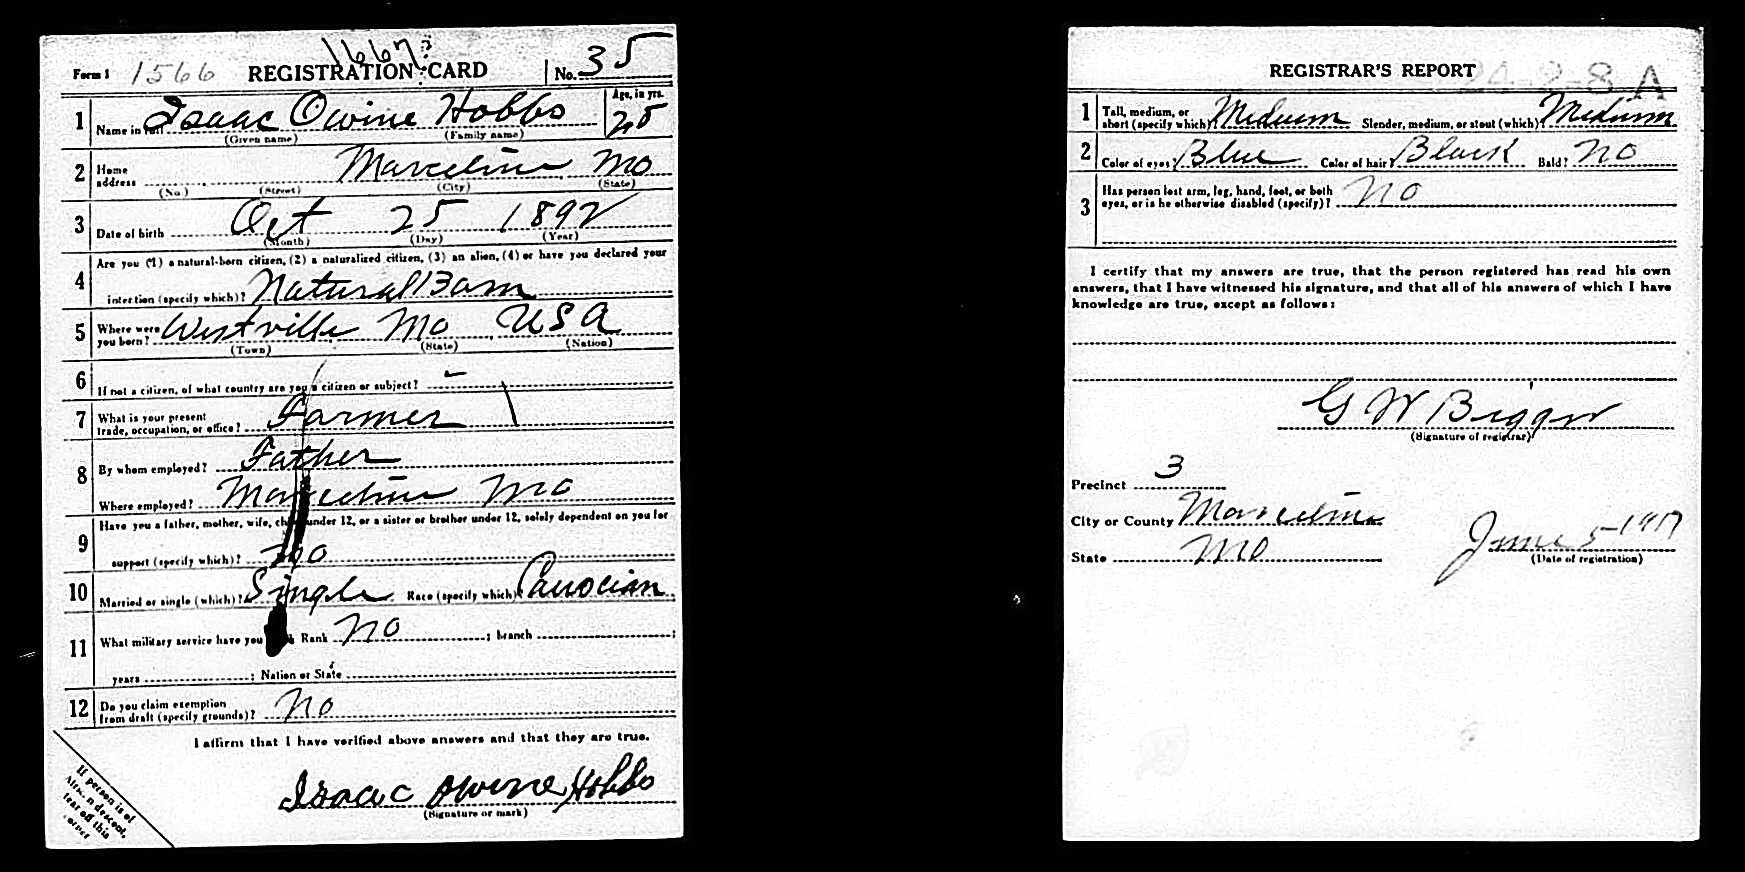 1667?
Form 1 1566 REGISTRATION CARD No. 35
1 Name in full Isaac Owine Hobbs Age, in yrs. 25
(Given name) (Family name)
2 Home address Marceline Mo
(No.) (Street) (City) (State)
3 Date of birth Oct 25 1892
(Month) (Day) (Year)
Are you (1) a natural-born citizen, (2) a naturalized citizen, (3) an alien, (4) or have you declared your
4 intention (specify which)? Natural Born
5 Where were you born? Westville Mo USA
(Town) (State) (Nation)
6 If not a citizen, of what country are you a citizen or subject? -
7 What is your present trade, occupation, or office? Farmer
8 By whom employed? Father
Where employed? Marceline Mo
Have you a father, mother, wife, child under 12, or a sister or brother under 12, solely dependent on you for
9 support (specify which)? No
10 Married or single (which)? Single Race (specify which)? Causcian
11 What military service have you Rank No ; branch ;
years ; Nation or State
12 Do you claim exemption from draft (specify grounds)? No
I affirm that I have verified above answers and that they are true.
Isaac Owine Hobbs
(Signature or mark)
If person is of
African descent,
tear off this
corner
24-2-8 A
REGISTRAR'S REPORT
1 Tall, medium, or short (specify which)? Medium Slender, medium, or stout (which)? Medium
2 Color of eyes? Blue Color of hair? Black Bald? No
3 Has person lost arm, leg, hand, foot, or both
eyes, or is he otherwise disabled (specify)? No
I certify that my answers are true, that the person registered has read his own
answers, that I have witnessed his signature, and that all of his answers of which I have
knowledge are true, except as follows:
G W Bigger
(Signature of registrar)
Precinct 3
City or County Marceline
State Mo
June 5-1917
(Date of registration)